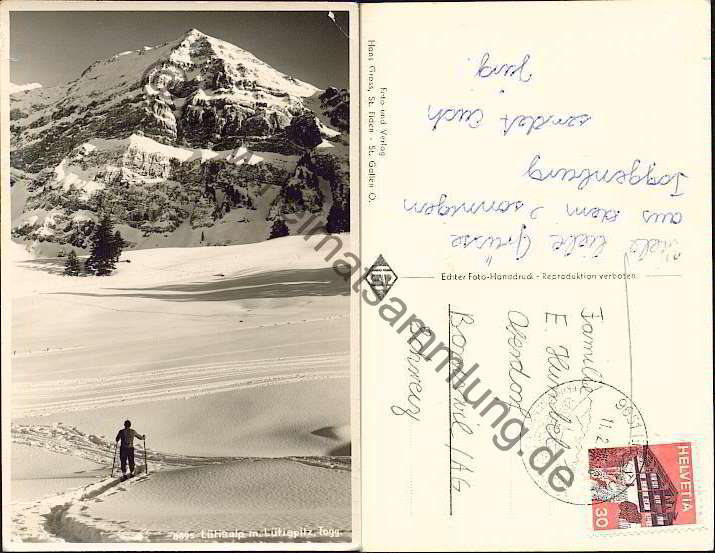 8695 Lütisalp m. Lütispitz, Togg.
Foto und Verlag
Hans Gross, St. Fiden - St. Gallen O.
Echter Foto-Handdruck - Reproduktion verboten.
Viele liebe Grüsse
aus dem sonnigen
Toggenburg
sendet Euch
Familie
E. Humbel
Oberdorf
Boniswil/AG
Schweiz
HELVETIA
30
heimatsammlung.de